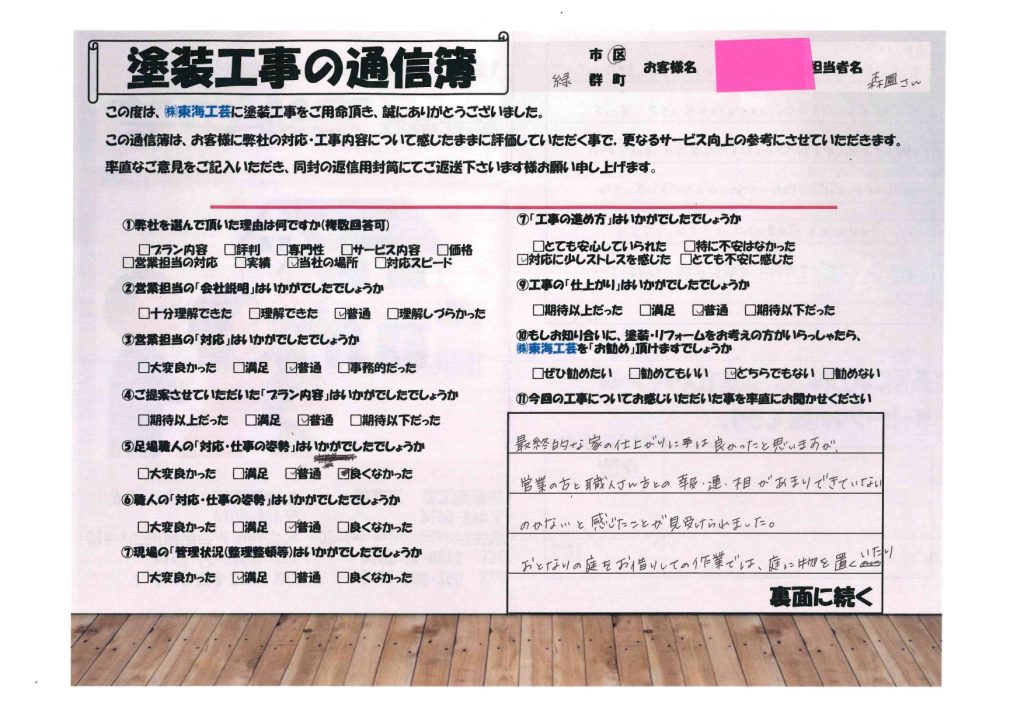 塗装工事の通信簿
市 区
緑 群 町 お客様名 担当者名 森園さん
この度は、㈱東海工芸に塗装工事をご用命頂き、誠にありがとうございました。
この通信簿は、お客様に弊社の対応・工事内容について感じたままに評価していただく事で、更なるサービス向上の参考にさせていただきます。
率直なご意見をご記入いただき、同封の返信用封筒にてご返送下さいます様お願い申し上げます。
①弊社を選んで頂いた理由は何ですか(複数回答可)
□プラン内容 □評判 □専門性 □サービス内容 □価格
□営業担当の対応 □実績 ☑当社の場所 □対応スピード
②営業担当の「会社説明」はいかがでしたでしょうか
□十分理解できた □理解できた ☑普通 □理解しづらかった
③営業担当の「対応」はいかがでしたでしょうか
□大変良かった □満足 ☑普通 □事務的だった
④ご提案させていただいた「プラン内容」はいかがでしたでしょうか
□期待以上だった □満足 ☑普通 □期待以下だった
⑤足場職人の「対応・仕事の姿勢」はいかがでしたでしょうか
□大変良かった □満足 ☑普通 □良くなかった
⑥職人の「対応・仕事の姿勢」はいかがでしたでしょうか
□大変良かった □満足 ☑普通 □良くなかった
⑦現場の「管理状況(整理整頓等)はいかがでしたでしょうか
□大変良かった ☑満足 □普通 □良くなかった
⑦「工事の進め方」はいかがでしたでしょうか
□とても安心していられた □特に不安はなかった
☑対応に少しストレスを感じた □とても不安に感じた
⑨工事の「仕上がり」はいかがでしたでしょうか
□期待以上だった □満足 ☑普通 □期待以下だった
⑩もしお知り合いに、塗装・リフォームをお考えの方がいらっしゃたら、
㈱東海工芸を「お勧め」頂けますでしょうか
□ぜひ勧めたい □勧めてもいい ☑どちらでもない □勧めない
⑪今回の工事についてお感じいただいた事を率直にお聞かせください
最終的な家の仕上がりに手は良かったと思いますが、
営業の方と職人さん方との報・連・相があまりできていない
のかな?と感じたことが見受けられました。
おとなりの庭をお借りしての作業では、庭に物を置いたり
裏面に続く